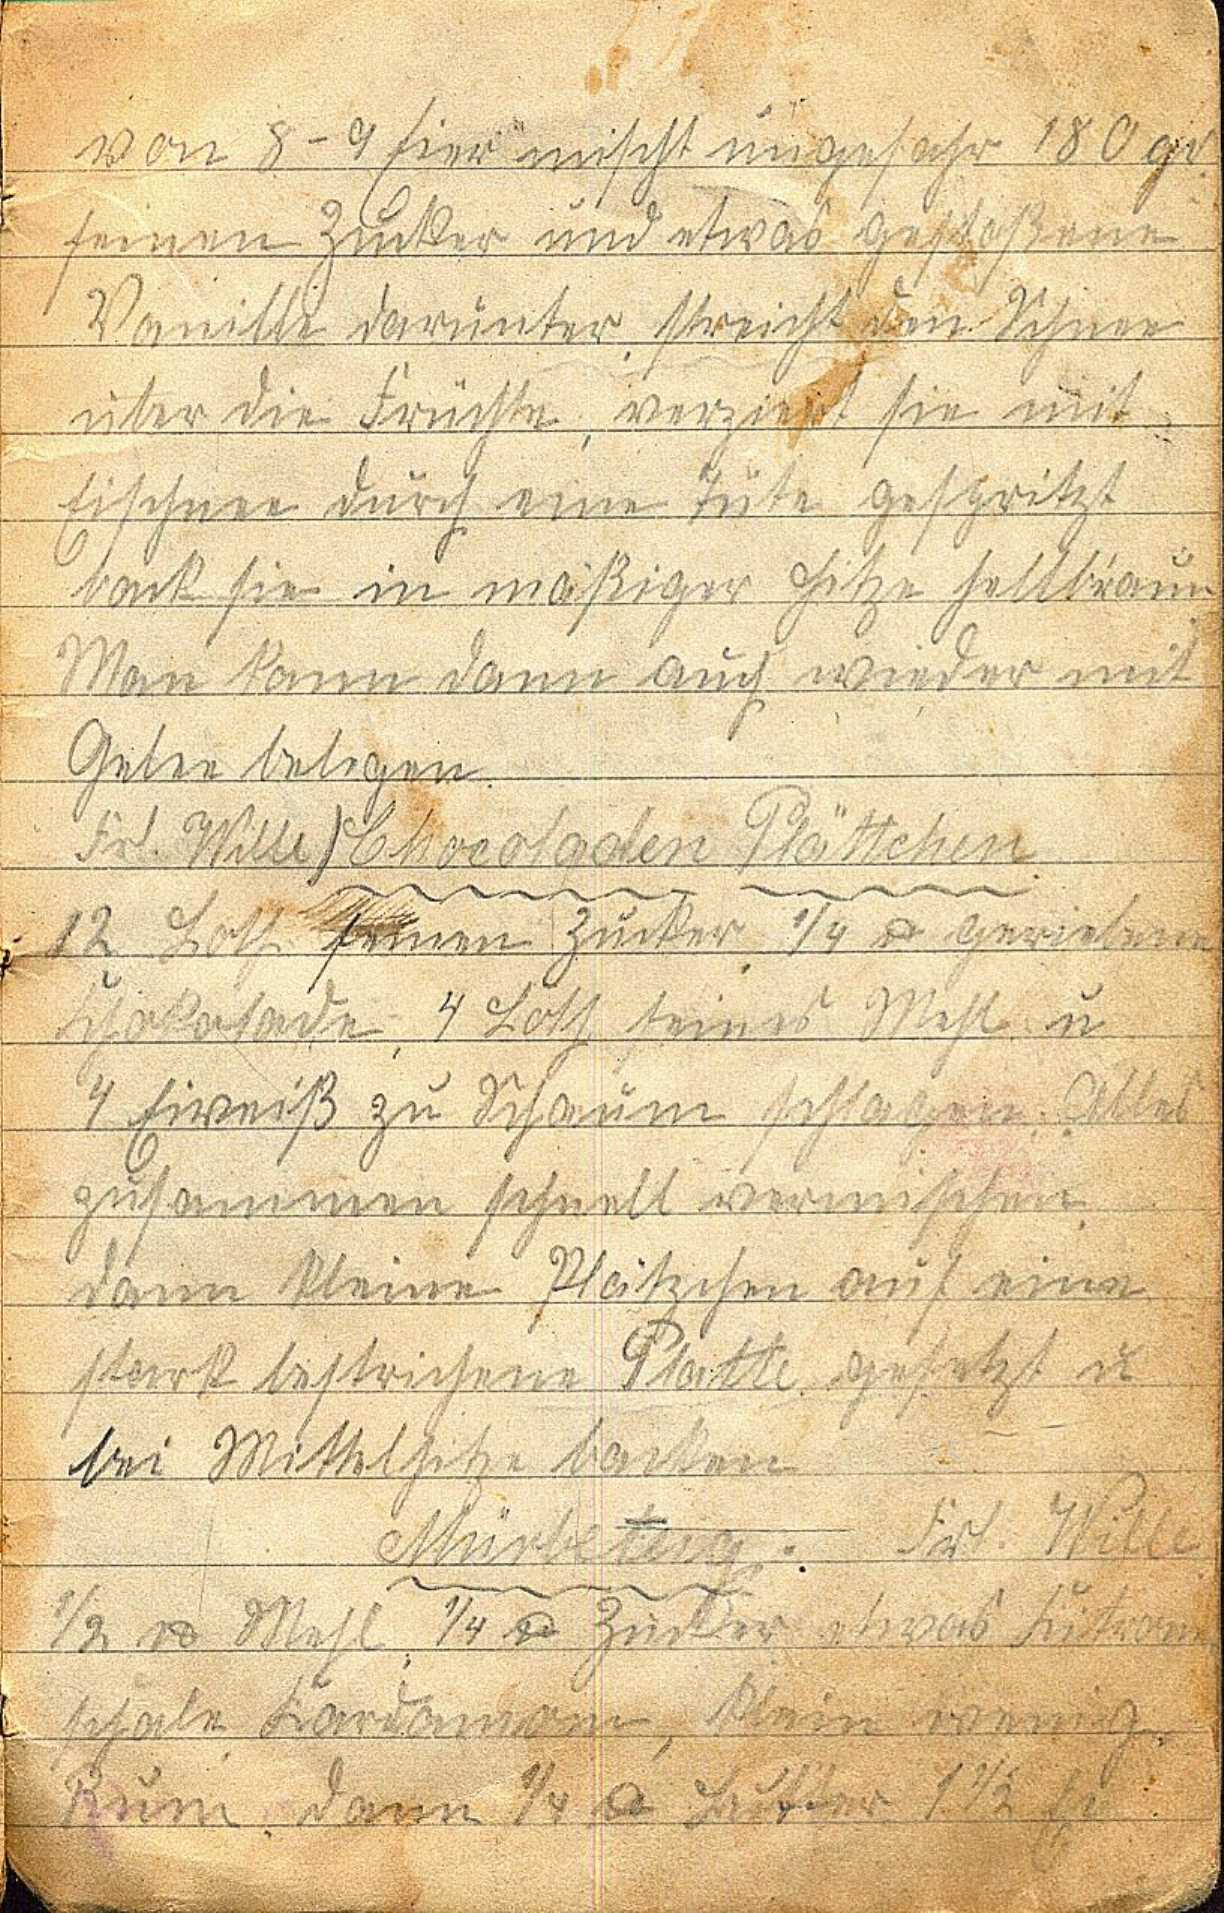 von 8-9 Eier mischt ungefähr 180 gr.
feinen Zucker und etwas gestoßene
Vanille darunter, streicht den Schnee
über die Früchte, verziert sie mit
Eischnee durch eine Tüte gespritzt
back sie in mäßiger Hitze hellbraun
Man kann dann auch wieder mit
Gelee belegen.
Frl. Wille) Chocoladen Plättchen
12 Loth feinen Zucker, 1/4 ℔ geriebene
Schokolade, 4 Loth feines Mehl u
4 Eiweiß zu Schaum schlagen. Alles
zusammen schnell vermischen
dann kleine Plätzchen auf eine
stark bestrichene Platte gesetzt u
bei Mittelhitze backen
Mürbeteig. Frl. Wille
1/2 ℔ Mehl, 1/4 ℔ Zucker etwas Zitronen
schale Kardamom, klein wenig
Rum, dann 1/4 ℔ Butter 1 1/2 Ei